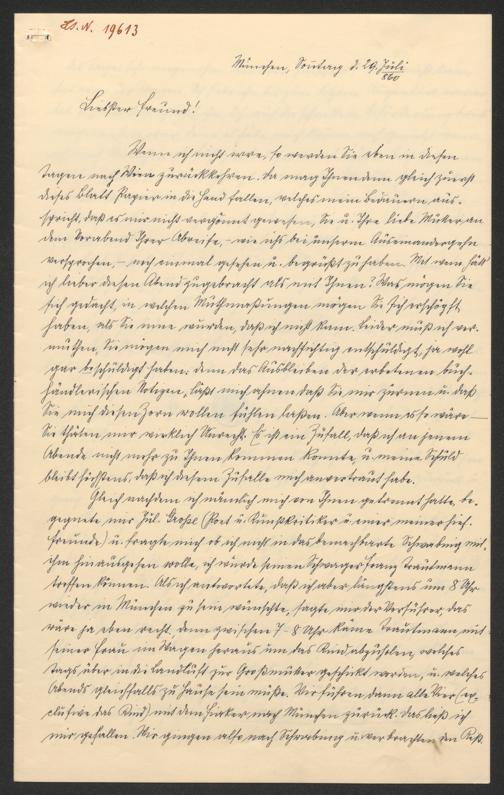 Ls. N. 19613
München, Sonntag d. 29. Juli
860
Liebster Freund!
Wenn ich nicht irre, so werden Sie eben in diesen
Tagen nach Wien zurückkehren. Da mag Ihnen denn gleich zuerst
dieses Blatt Papier in die Hand fallen, welches mein Bedauern aus-
spricht, daß es mir nicht vergönnt gewesen, Sie u. Ihre liebe Mutter an
dem Vorabend Ihrer Abreise, – wie ich's bei unserm Auseinandergehn
versprochen, – noch einmal gesehen u. begrüßt zu haben. Mit wem hätt'
ich lieber diesen Abend zugebracht als mit Ihnen? Was mögen Sie
sich gedacht, in welchen Muthmaßungen mögen Sie sich erschöpft
haben, als Sie inne wurden, daß ich nicht kam. Leider muß ich ver-
muthen, Sie mögen mich nicht sehr nachsichtig entschuldigt, ja wohl
gar beschuldigt haben; denn das Ausbleiben der erbetenen buch-
händlerischen Notizen, läßt mich ahnen daß Sie mir zürnen u. daß
Sie mich diesen Zorn wollen fühlen laßen. Aber wenn es so wäre –
Sie thäten mir wirklich Unrecht. Es ist ein Zufall, daß ich an jenem
Abende nicht mehr zu Ihnen kommen konnte, u. meine Schuld
bleibt höchstens, daß ich diesem Zufalle mich anvertraut habe.
Gleich nachdem ich nämlich mich von Ihnen getrennt hatte, be-
gegnete mir Jul. Große (Poet u. Kunstkritiker u. einer meiner hies.
Freunde) u. fragte mich ob ich nicht in das benachbarte Schwabing mit
ihm hinausgehen wolle, ich würde seinen Schwager Franz Trautmann
treffen können. Als ich antwortete, daß ich aber längstens um 8 Uhr
wieder in München zu sein wünschte, sagte mir der Verführer, das
wäre ja eben recht, denn zwischen 7–8 Uhr käme Trautmann mit
seiner Frau im Wagen heraus um das Kind abzuholen, welches
Tags über in die Landluft zur Großmutter geschickt worden, u. welches
Abends gleichfalls zu Hause sein müße. Wir führen dann alle Vier (ex-
clusive das Kind) mit dem Fiaker nach München zurück. Das ließ ich
mir gefallen. Wir gingen also nach Schwabing u. verbrachten den Rest